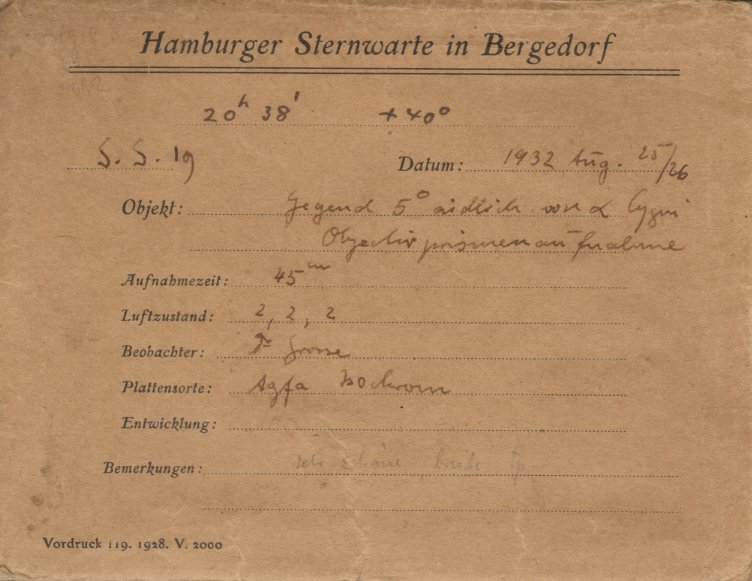 Hamburger Sternwarte in Bergedorf
20h 38' +40°
S. S. 19 Datum: 1932 Aug. 25/26
Objekt: Gegend 5° südlich von α Cygni
Objectivprismenaufnahme
Aufnahmezeit: 45m
Luftzustand: 2, 2, 2
Beobachter: Grosse
Plattensorte: Agfa Isochrom
Entwicklung:
Bemerkungen: sehr schöne, breite Sp
Vordruck 119. 1928. V. 2000